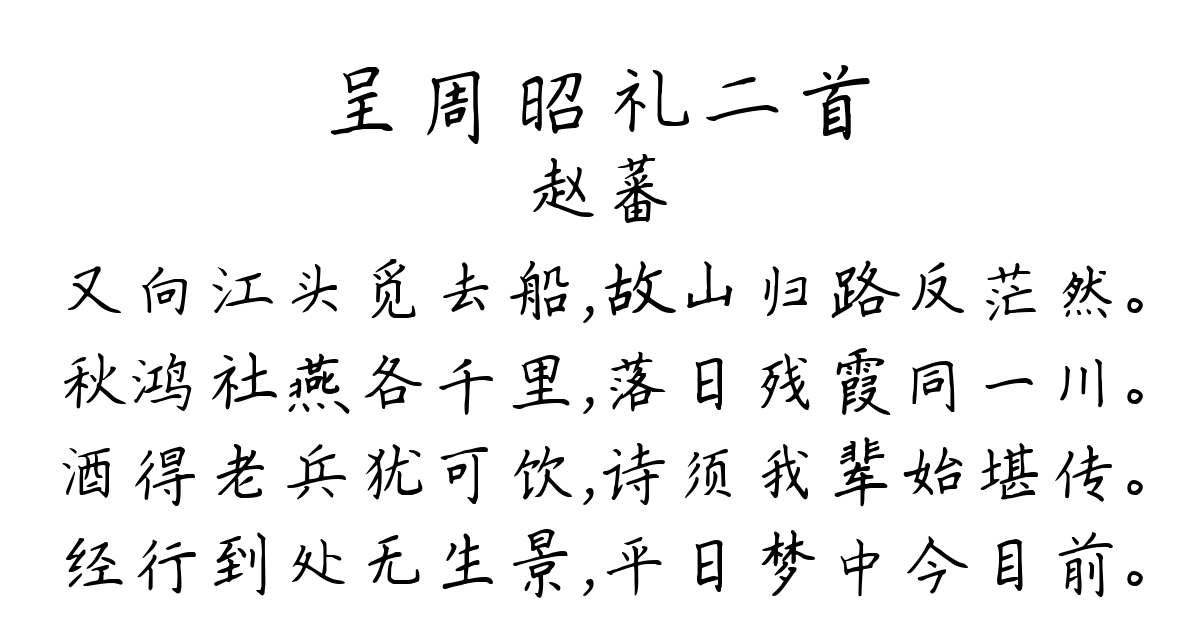 呈周昭礼二首
赵蕃
又向江头觅去船,故山归路反茫然。
秋鸿社燕各千里,落日残霞同一川。
酒得老兵犹可饮,诗须我辈始堪传。
经行到处无生景,平日梦中今目前。